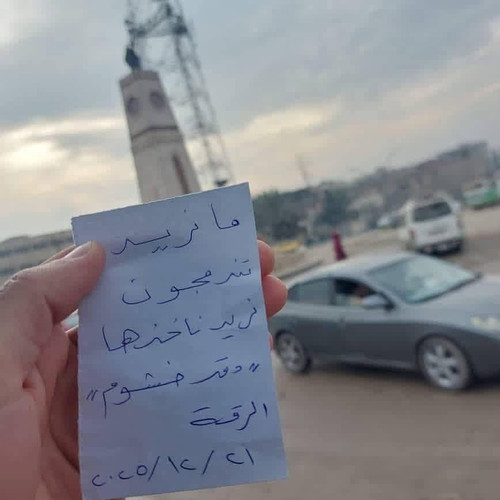 ما نريد
تندمجون
نريد ناخذها
"دقر خشوم"
الرقة
٢٠٢٥/١٢/٢١